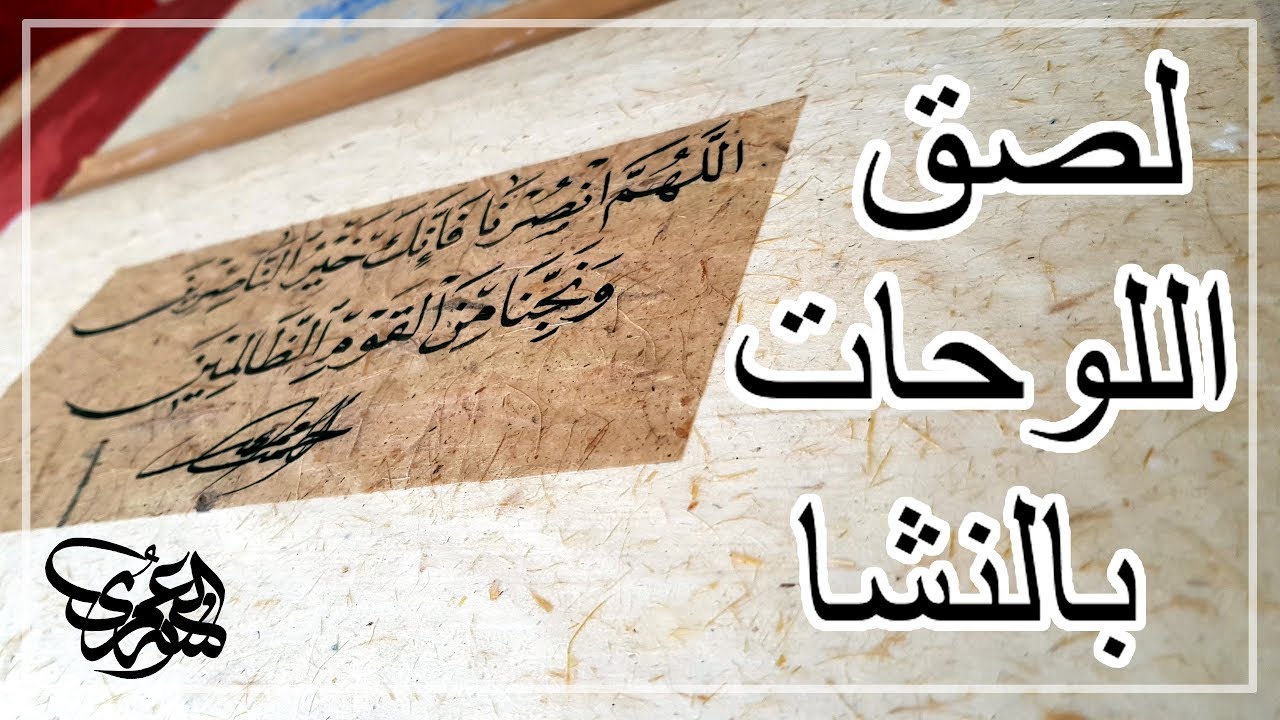 لصق
اللوحات
بالنشا
اللَّهُمَّ انْصُرْنَا فَإِنَّكَ خَيْرُ النَّاصِرِينَ
وَنَجِّنَا مِنَ الْقَوْمِ الظَّالِمِينَ